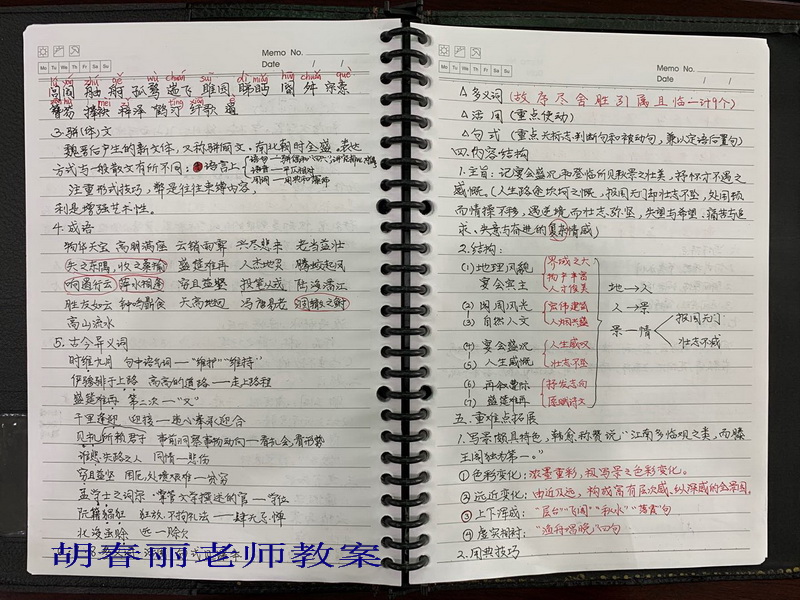 Memo No.
Mo Tu We Th Fr Sa Su
Date / /
3.骈(体)文
魏晋后产生的新文体，又称骈俪文。南北朝时全盛。表达
方式与一般散文有所不同：语言上
注重形式技巧，弊是往往束缚内容，
利是增强艺术性。
4.成语
物华天宝 高朋满座 云销雨霁 兴尽悲来 老当益壮
失之东隅，收之桑榆 盛筵难再 人杰地灵 腾蛟起凤
响遏行云 萍水相逢 穷且益坚 投笔从戎 陆海潘江
胜友如云 钟鸣鼎食 天高地迥 冯唐易老 涸辙之鲋
高山流水
5.古今异义词
时维九月 句中语气词—“维护”“维持”
俨骖騑于上路 高高的道路—走上路程
盛筵难再 第二次—“又”
千里逢迎 迎接—逢心奉承迎合
谁悲失路之人 同情—悲伤
穷且益坚
孟学士之词宗 掌管文学撰述的官—学位
阮籍猖狂 狂放、不拘礼法—肆无忌惮
北海虽赊 远—赊欠
胡春丽老师教案
Memo No.
Mo Tu We Th Fr Sa Su
Date / /
△多义词（故 尽 舍 胜 引 属 且 临 一 计9个）
△活用（重点使动）
△句式（重点无标志判断句和被动句，兼以定语后置句）
四.内容结构
1.主旨：记宴会盛况和登临所见秋景之壮美，抒怀才不遇之
感慨。（人生路途坎坷之慨，报国无门却壮志不坠，处困顿
而情操不移，遇逆境而壮志弥坚，失望与希望、痛苦与追
求、失意与奋进的复杂情感）
2.结构：
(1)地理风貌
宴会宾主
界域之大
物产丰富
人才俊美
地→人
(2)阁周风光
(3)自然人文
宏伟建筑
人烟兴盛
人→景
(4)宴会盛况
(5)人生感慨
人生感叹
壮志不坠
景—情
报国无门
壮志不减
(6)再叙遭际
(7)盛筵难再
抒发志向
五.重难点拓展
1.写景颇具特色，韩愈称赞说“江南多临观之类，而滕
王阁独为第一。”
①色彩变化：浓墨重彩，极写景之色彩变化。
②远近变化：由近及远，构成富有层次感、纵深感的全景图。
③上下浑成：“层台”“飞阁”“秋水”“落霞”句
④虚实相衬：“渔舟唱晚”四句
2.用典技巧